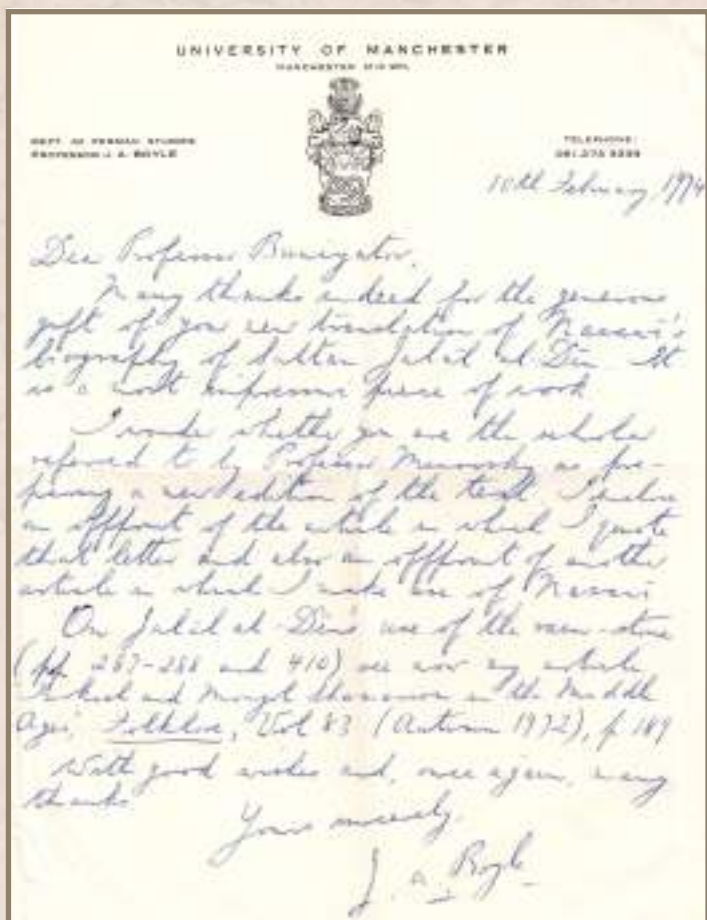 UNIVERSITY OF MANCHESTER
MANCHESTER M13 9PL
DEPT. OF PERSIAN STUDIES
PROFESSOR J. A. BOYLE
TELEPHONE:
061-273 3333
10th February, 1974
Dear Professor Buniyatov,
Many thanks indeed for the generous
gift of your new translation of Nasawi's
biography of Sultan Jalal al-Din. It
is a most impressive piece of work
I wonder whether you are the scholar
referred to by Professor Minorsky as pre-
paring a new edition of the text. I enclose
an offprint of the article in which I quote
that letter and also an offprint of another
article in which I make use of Nasawi
On Jalal al-Din's use of the rain-stone
(pp. 287-288 and 410) see now my article
and Mongol Shamanism in the Middle
Ages', Folklore, Vol 83 (Autumn 1972), p 189
With good wishes and, once again, many
thanks
Yours sincerely,
J. A. Boyle